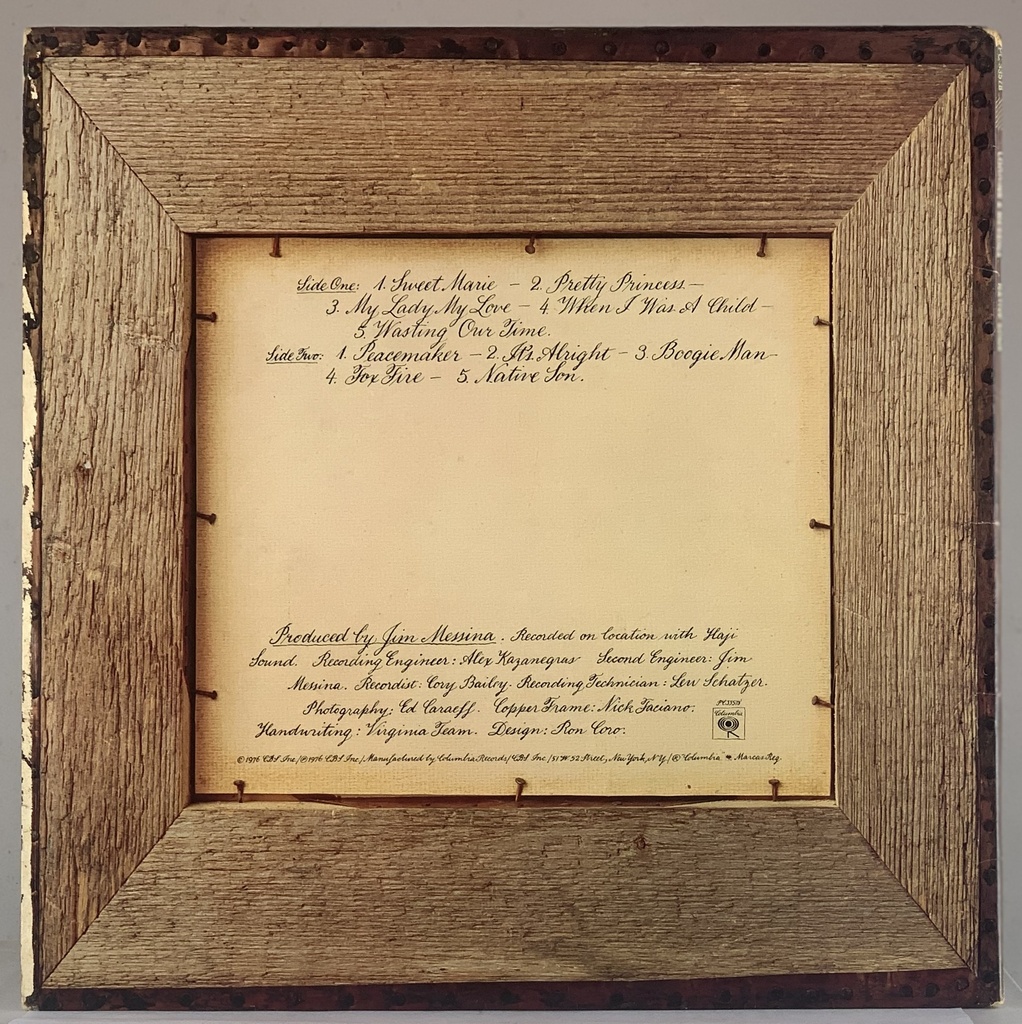 Side One: 1. Sweet Marie – 2. Pretty Princess –
3. My Lady, My Love – 4. When I Was A Child –
5. Wasting Our Time.
Side Two: 1. Peacemaker – 2. It's Alright – 3. Boogie Man –
4. Fox Fire – 5. Native Son.
Produced by Jim Messina. Recorded on location with Haji
Sound. Recording Engineer: Alex Kazanegras Second Engineer: Jim
Messina. Recordist: Cory Bailey. Recording Technician: Lew Schatzer.
Photography: Ed Caraeff. Copper Frame: Nick Faciano.
PC33578
Columbia
Handwriting: Virginia Team. Design: Ron Coro.
© 1976 CBS Inc./℗ 1976 CBS Inc./Manufactured by Columbia Records/CBS Inc./51 W 52 Street, New York, N.Y./® "Columbia" Marcas Reg.